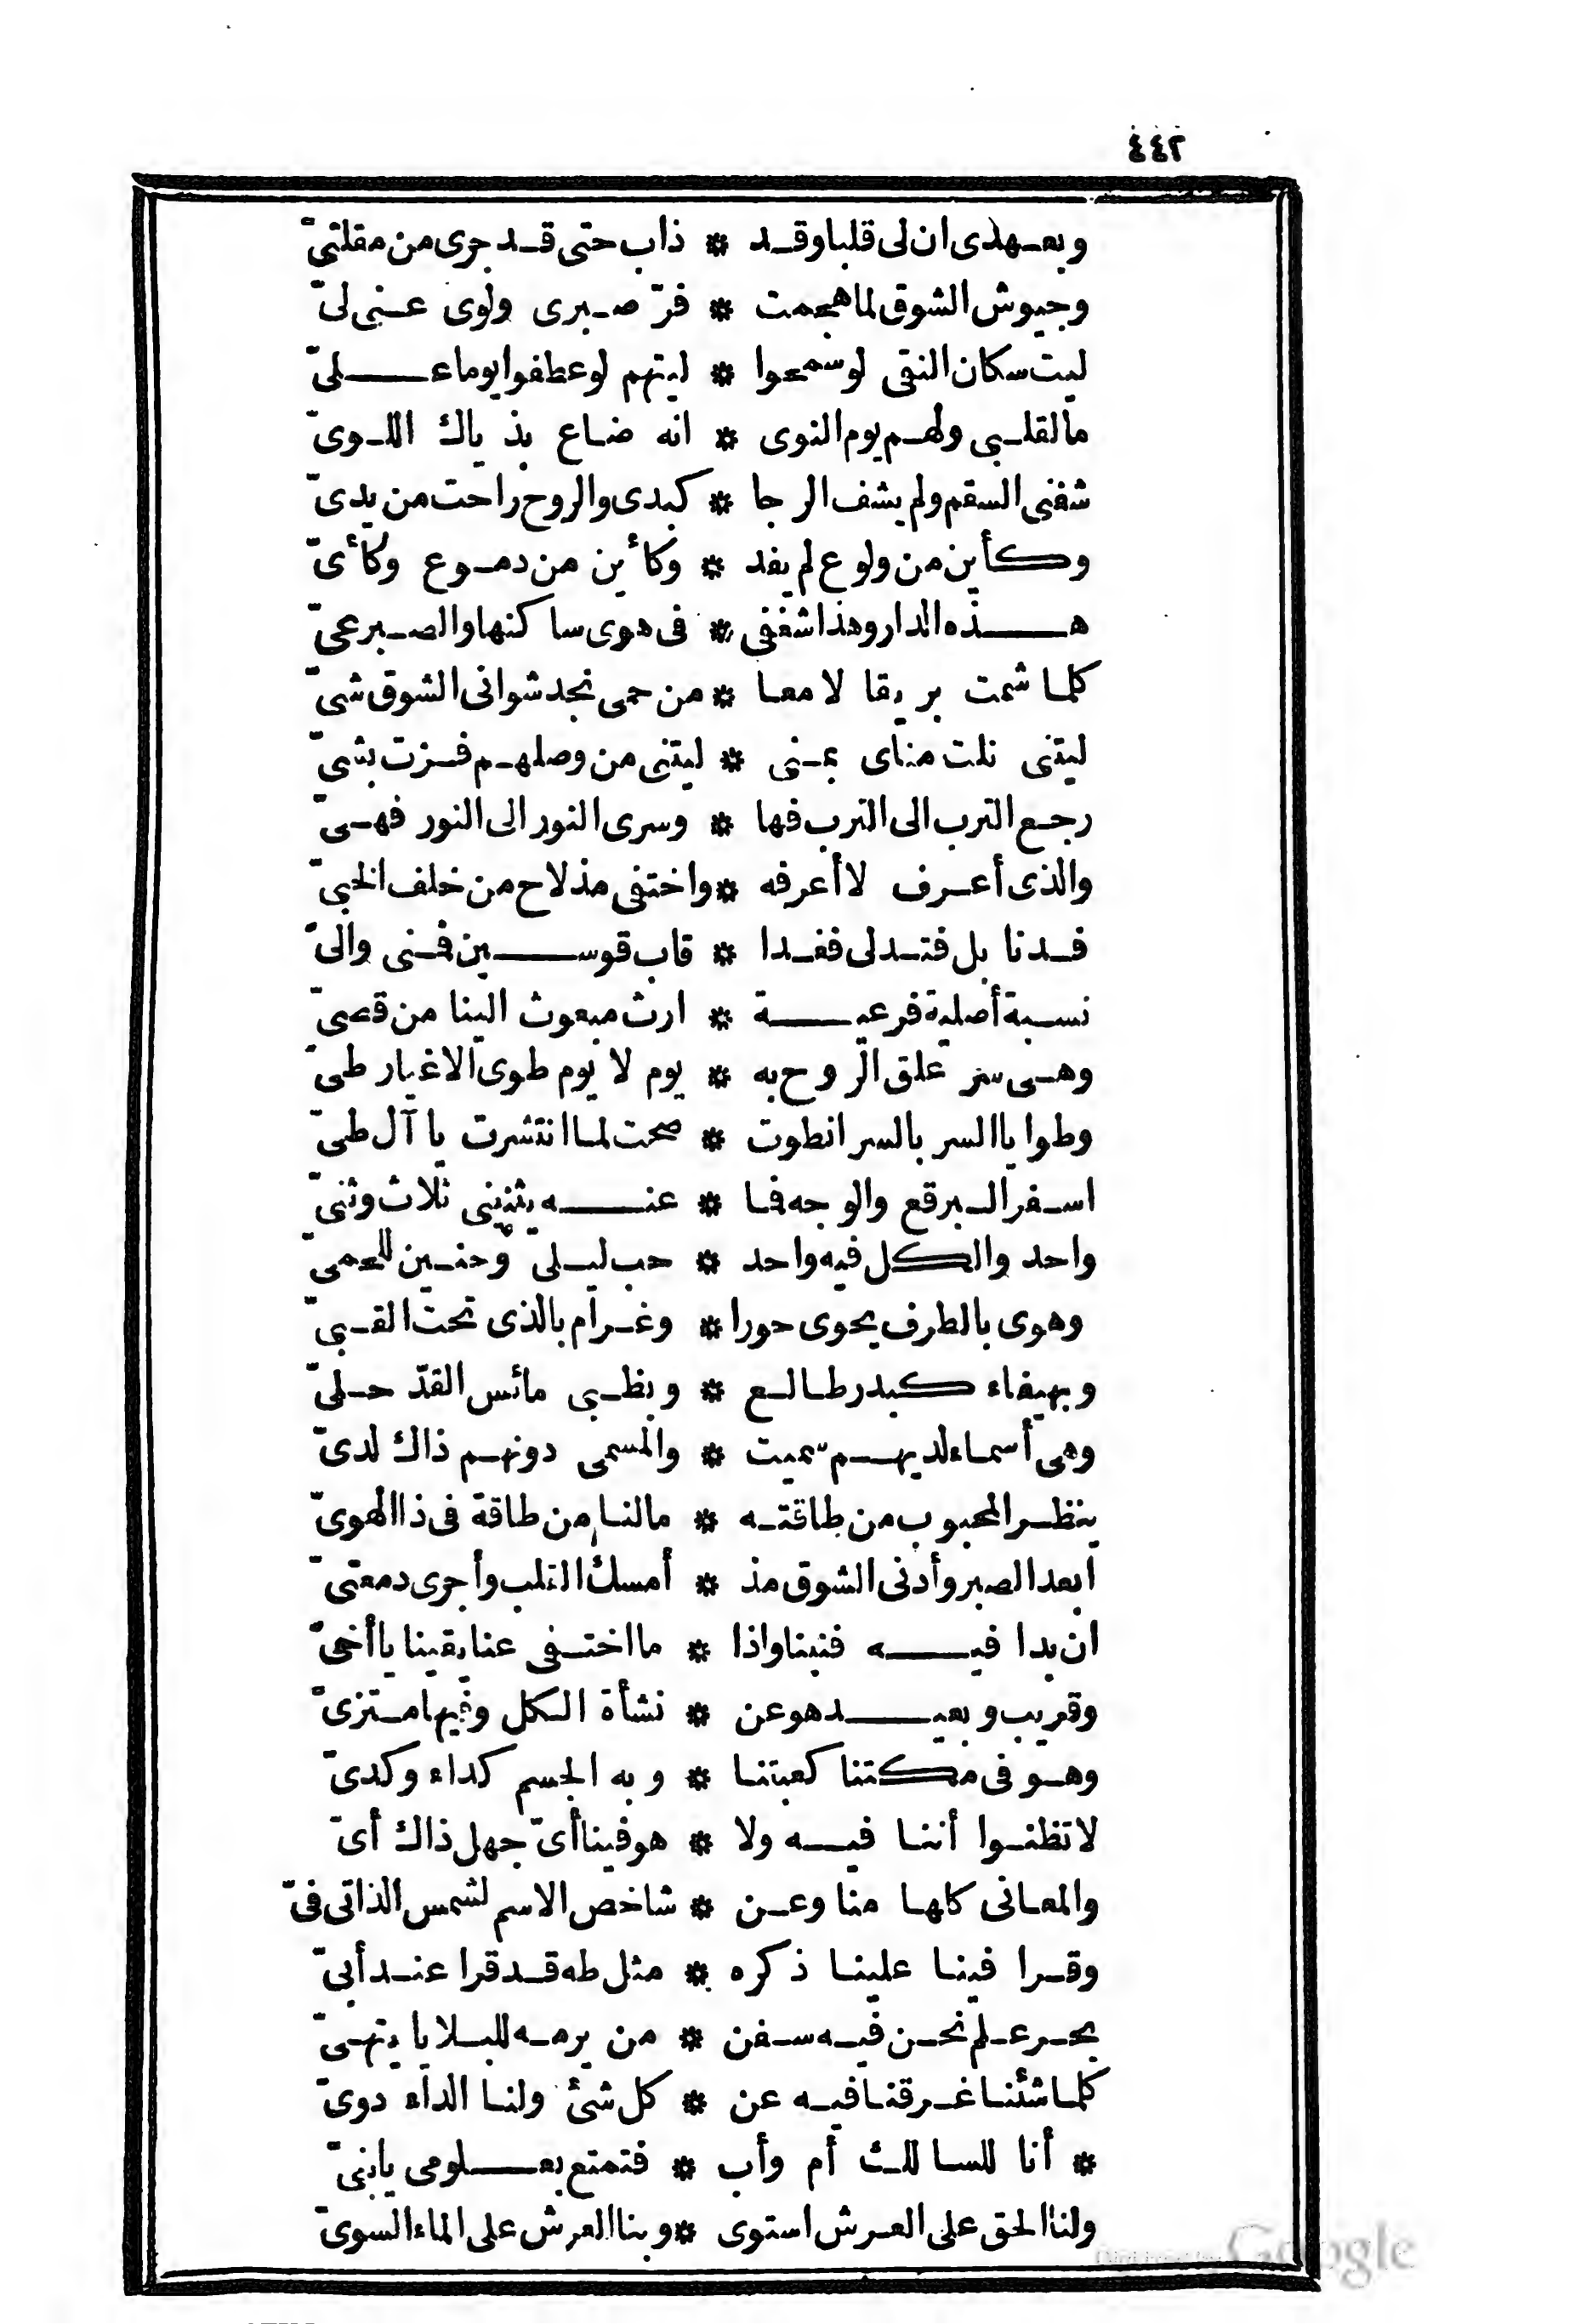 ٤٤٢
وبعهدى ان لى قلبا وقد * ذاب حتى قد جرى من مقلتىّ
وجيوش الشوق لما هجمت * فرّ صبرى ولوى عنى لىّ
ليت سكان النقى لو سمعوا * ليتهم لو عطفوا يوما علىّ
ما لقلبى ولهم يوم النوى * انه ضاع بذ ياك اللوىّ
شفنى السقم ولم يشف الرجا * كبدى والروح راحت من يدىّ
وكأين من ولوع لم يفد * وكأين من دموع وكأىّ
هذه الدار وهذا شغفى * فى هوى ساكنها والصبر عىّ
كلما شمت بريقا لامعا * من حمى نجد شوانى الشوق شىّ
ليتنى نلت مناى بمنى * ليتنى من وصلهم فزت بشىّ
رجع الترب الى الترب فها * وسرى النور الى النور فهىّ
والذى أعرف لا أعرفه * واختفى مذ لاح من خلف الخبىّ
فدنا بل فتدلى فغدا * قاب قوسين فنى والىّ
نسبة أصلية فرعية * ارث مبعوث الينا من قصىّ
وهى سر علق الروح به * يوم لا يوم طوى الاغيار طىّ
وطوايا السر بالسر انطوت * صحت لما انتشرت يا آل طىّ
اسفر البرقع والوجه فما * عنه يثنينى ثلاث وثنىّ
واحد والكل فيه واحد * حب ليلى وحنين للحمىّ
وهوى بالطرف يحوى حورا * وغرام بالذى تحت القبىّ
وبهيفاء كبدر طالع * وبظبى مائس القدّ حلىّ
وهى أسماء لديهم سميت * والمسمى دونهم ذاك لدىّ
ينظر المحبوب من طاقته * ما لنا من طاقة فى ذا الهوىّ
ابعد الصبر وأدنى الشوق مذ * أمسك القلب وأجرى دمعتىّ
ان بدا فيه فنينا واذا * ما اختفى عنا بقينا يا أخىّ
وقريب وبعيد هو عن * نشأة الكل وفيها متزىّ
وهو فى مكتنا كعبتنا * وبه الجسم كداء وكدىّ
لا تظنوا أننا فيه ولا * هو فينا أىّ جهل ذاك أىّ
والمعانى كلها منا وعن * شاخص الاسم لشمس الذاتى فىّ
وقرا فينا علينا ذكره * مثل طه قد قرا عند أبىّ
بحر علم نحن فيه سفن * من يرمه للبلايا يتهىّ
كلما شئنا غرقنا فيه عن * كل شئ ولنا الداء دوىّ
* أنا للسالك أم وأب * فتمتع بعلومى يا بنىّ
ولنا الحق على العرش استوى * وبنا العرش على الماء السوىّ
Google